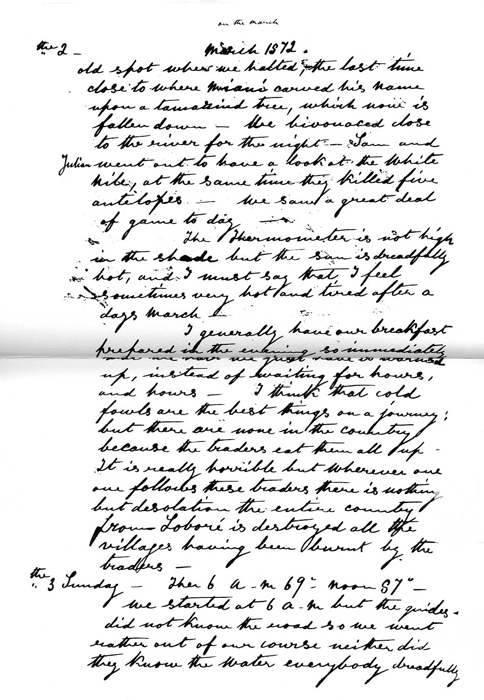 on the march
the 2 — March 1872.
old spot where we halted, the last time
close to where Miani carved his name
upon a tamarind tree, which now is
fallen down — We bivouaced close
to the river for the night — Sam and
Julian went out to have a look at the White
Nile, at the same time they killed five
antelopes — we saw a great deal
of game to day —
The Thermometer is not high
in the shade but the sun is dreadfully
hot, and I must say that I feel
sometimes very hot and tired after a
days march —
I generally have our breakfast
prepared in the evening so immediately
up, instead of waiting for hours,
and hours — I think that cold
fowls are the best things on a journey;
but there are none in the country
because the traders eat them all up.
It is really horrible but wherever one
one follows these traders there is nothing
but desolation the entire country
from Loboré is destroyed all the
villages having been burnt by the
traders —
the 3 Sunday — Ther 6 A-M 69° noon 87° —
We started at 6 A-M but the guides
did not know the road so we went
rather out of our course neither did
they know the water everybody dreadfully